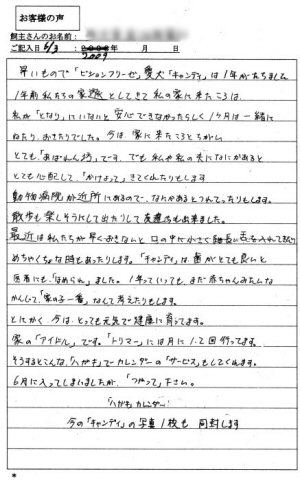 お客様の声
飼主さんのお名前:
ご記入日 6/3 2009年 月 日
早いもので「ビションフリーゼ」愛犬「キャンディ」は1年がたちました
1年前私たちの家族として私の家に来たころは、
私が「となり」にいないと安心できなかったらしく1ヶ月は一緒に
ねたり、おきたりでした。今は家に来たころとちがい
とても「あばれん坊」です。でも私や私の夫になにかあると
とても心配して、「かけよって」きてくれたりもします
動物病院が近所にあるので、なにかあるとつれてったりもします。
散歩も楽しそうにして出かりして友達も出来ました。
最近は私たちが早くおきないと口の中に小さく細長い舌を入れて
めちゃくちゃな時もあったりします。「キャンディ」は歯がとても良いと
医者にも「ほめられ」ました。1年っていっても、まだ赤ちゃんみたいな
かんじで、「家の子一番」なんて考えたりもします。
とにかく今は、とっても元気で健康に育ってます。
家の「アイドル」です。「トリマー」には月に1、2回行ってます。
そうするとこんな「ハガキ」でカレンダーの「サービス」もしてくれます。
6月に入ってしまいましたが、「つかって」下さい。
「ハガキカレンダー」
今の「キャンディ」の写真1枚も同封します
*